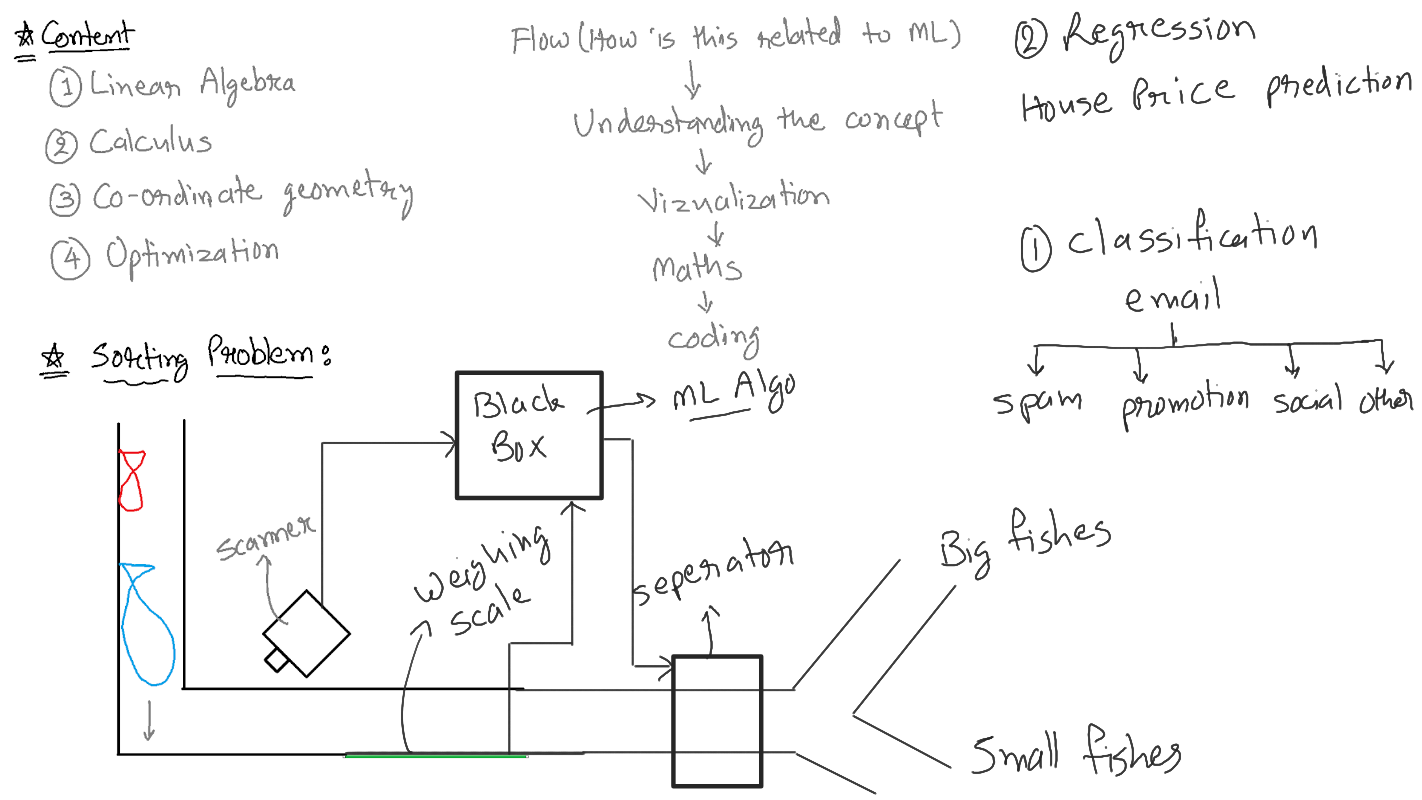 Content
① Linear Algebra
② Calculus
③ Co-ordinate geometry
④ Optimization
Flow (How is this related to ML)
Understanding the concept
Vizualization
Maths
coding
② Regression
House Price prediction
① classification
email
spam promotion social other
Sorting Problem:
Black
Box
ML Algo
scanner
weighing
scale
seperator
Big fishes
Small fishes